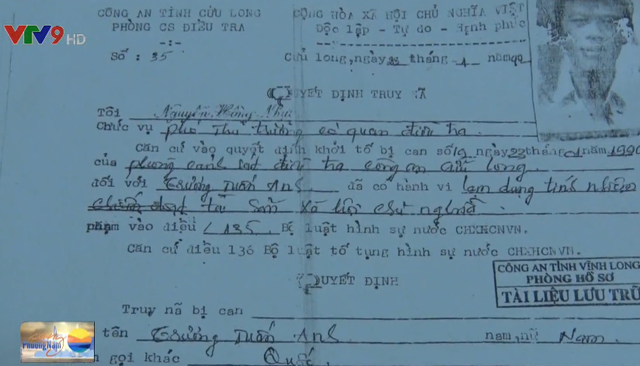 VTV9 HD
CÔNG AN TỈNH CỬU LONG
PHÒNG CS ĐIỀU TRA
-:-
Số : 35
CỘNG HÒA XÃ HỘI CHỦ NGHĨA VIỆT
Độc lập - Tự do - Hạnh phúc
Cửu long, ngày 23 tháng 1 năm 90
QUYẾT ĐỊNH TRUY NÃ
Tôi Nguyễn Hồng
Chức vụ phó thủ trưởng cơ quan điều tra
Căn cứ vào quyết định khởi tố bị can số 10 ngày 22 tháng 01 năm 1990
của phòng cảnh sát điều tra công an Cửu Long
đối với Trương Tuấn Anh đã có hành vi lạm dụng tính nhiệm
chiếm đoạt tài sản xã hội chủ nghĩa
phạm vào điều 135 Bộ luật hình sự nước CHXHCNVN.
Căn cứ điều 136 Bộ luật tố tụng hình sự nước CHXHCNVN.
QUYẾT ĐỊNH
CÔNG AN TỈNH VĨNH LONG
PHÒNG HỒ SƠ
TÀI LIỆU LƯU TRỮ
Truy nã bị can
tên Trương Tuấn Anh nam, nữ Nam
gọi khác Quốc
Phương Nam